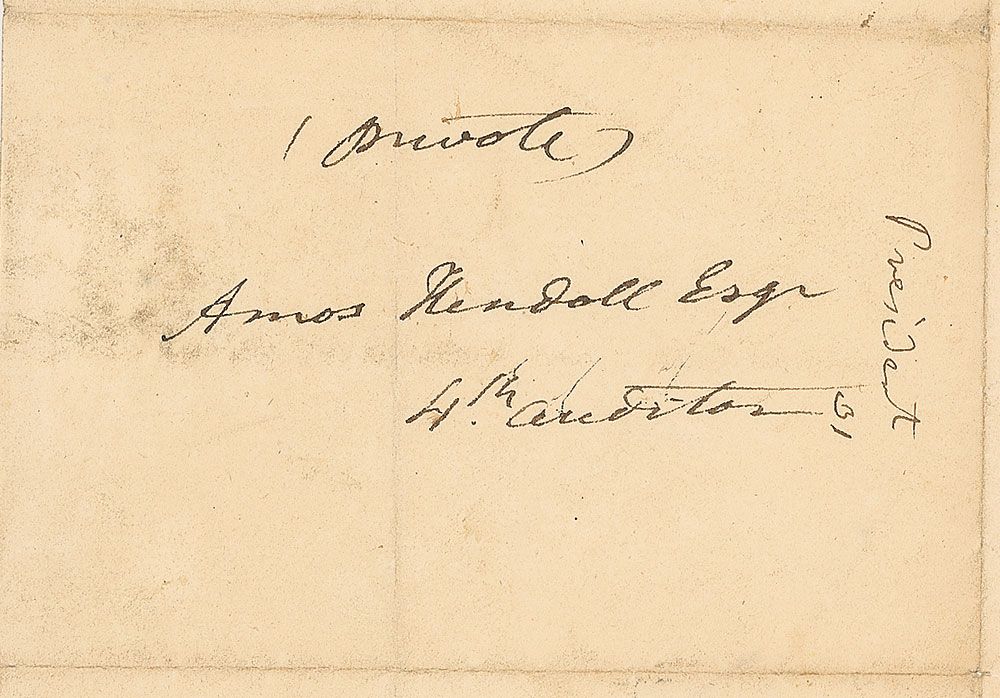 (Private)
Amos Kendall Esqr
4th. auditor
President